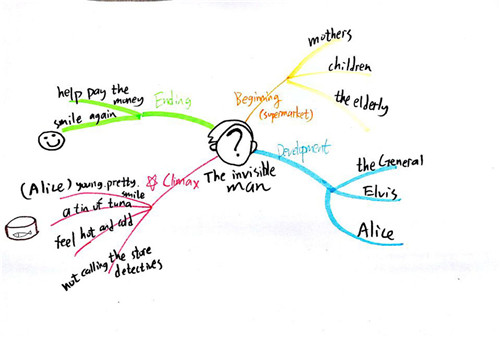 mothers
children
the elderly
Beginning
(supermarket)
help pay the
money
smile again
Ending
?
The invisible
man
Development
the General
Elvis
Alice
☆ Climax
(Alice) young. pretty.
smile
a tin of tuna
feel hot and cold
not calling the store
detectives